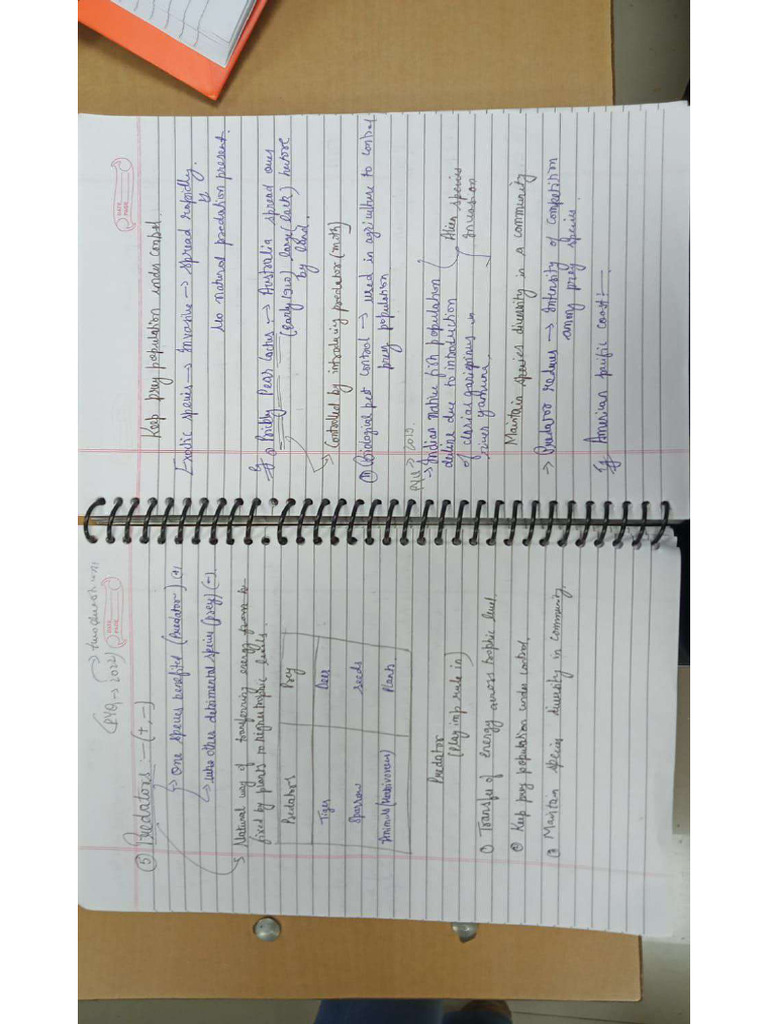 (PYQ → 2022) → two question
⑤ Predators :- (+, -)
→ One species benefited (Predator) (+)
→ who other detrimental species (prey) (-).
→ Natural way of transferring energy from to
fixed by plants to higher trophic levels.
Predators Prey
Tiger Deer
Sparrow seeds
Animals (Herbivorous) Plants
Predator
(Play imp rule in)
① Transfer of energy across trophic level.
② Keep prey population under control.
③ Maintain species diversity in community.
DATE
PAGE
Keep prey population under control.
Exotic species → Invasive → spread rapidly
↳
no natural predation present.
Eg ① Prickly Pear Cactus → Australia spread over
(early 1920) large (lack) hectare
by land.
→ Controlled by introducing predator (moth)
② Biological pest control → used in agriculture to control
prey population
PYQ → 2015.
→ Indian native fish population
decline due to introduction
of clarias gariepinus in
river yamuna.
Alien species
Invasion
Maintain species diversity in a community
→ Predator reduces → Intensity of competition
among prey species.
Eg American pacific coast -